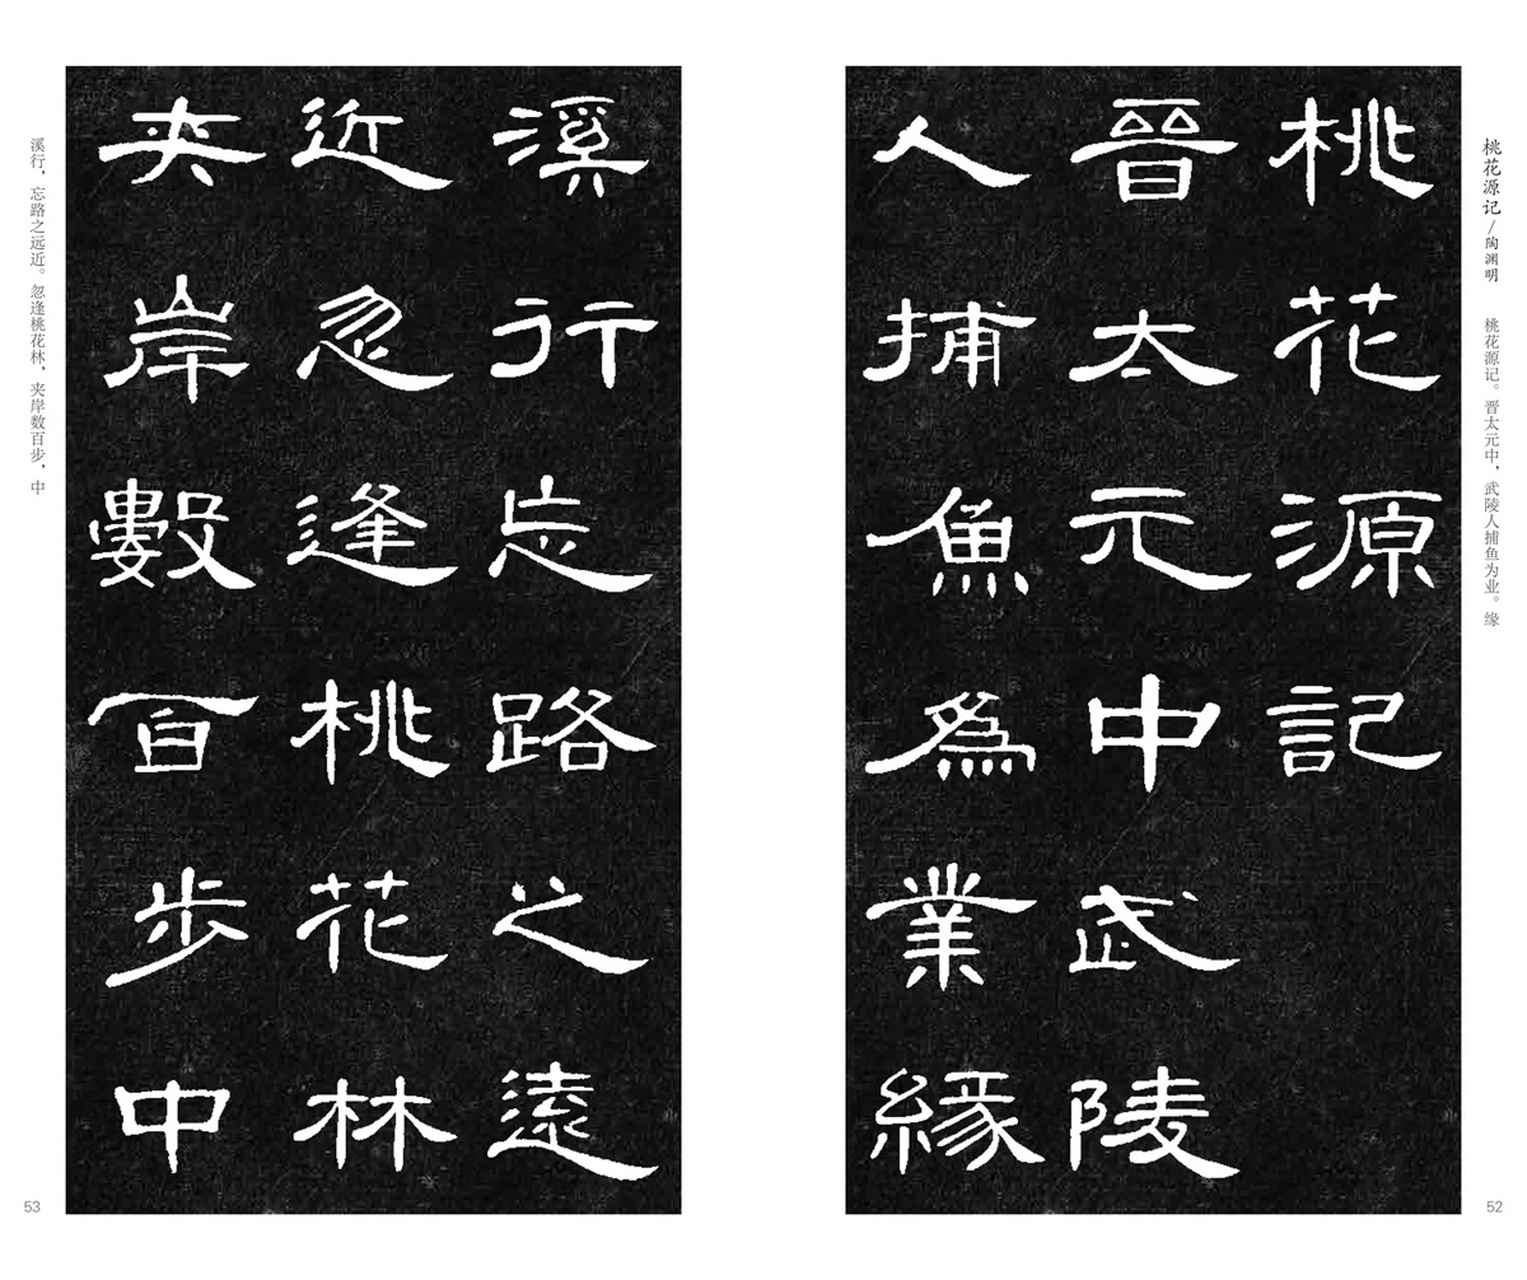 桃花源记/陶渊明 桃花源记。晋太元中，武陵人捕鱼为业。缘
桃花源記
晉太元中武陵
人捕魚為業緣
52
溪行忘路之遠
近忽逢桃花林
夹岸數百步中
溪行，忘路之远近。忽逢桃花林，夹岸数百步，中
53